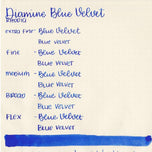 Diamine Blue Velvet
extra fine - Blue Velvet
Blue Velvet
fine - Blue Velvet
Blue Velvet
medium - Blue Velvet
Blue Velvet
BROAD - Blue Velvet
Blue Velvet
FLEX - Blue Velvet
Blue Velvet